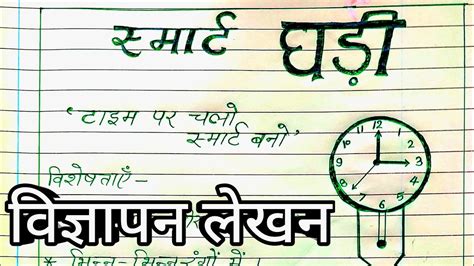 स्मार्ट घड़ी
'टाइम पर चलो
स्मार्ट बनो'
विशेषताएँ -
विज्ञापन लेखन
* भिन्न-भिन्न रंगों में।
12
1
2
3
4
5
6
7
8
9
10
11